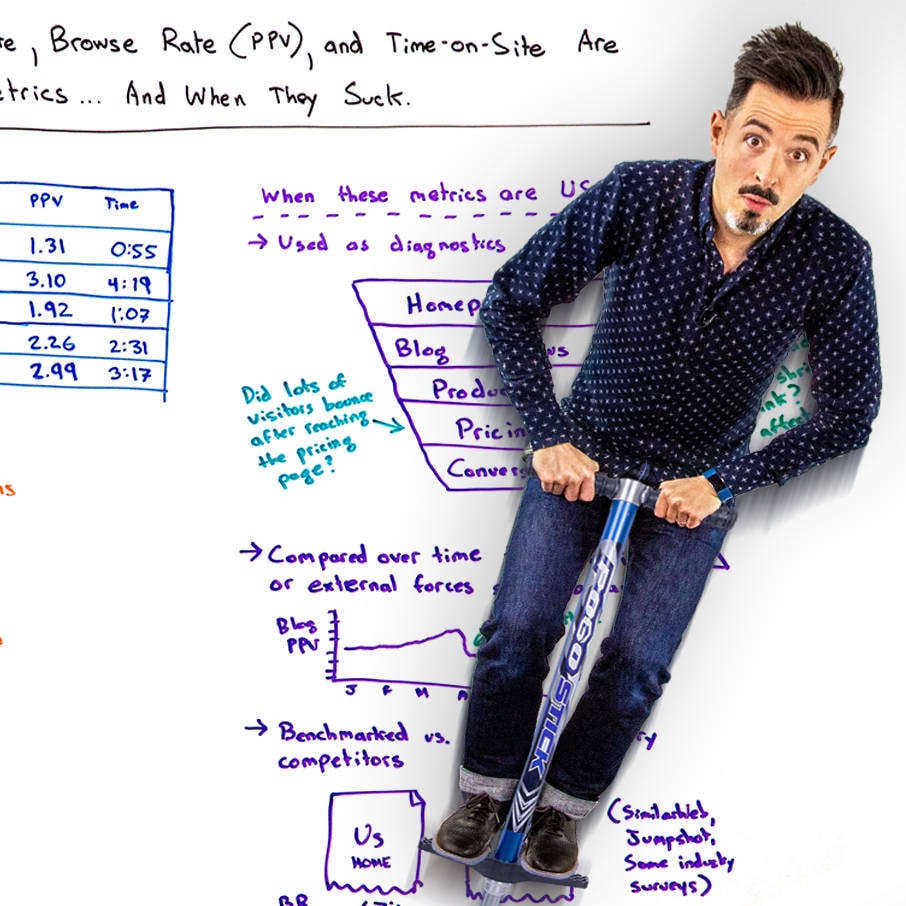 , Browse Rate (PPV), and Time-on-Site Are
... And When They Suck.
PPV Time
1.31 0:55
3.10 4:19
1.92 1:07
2.26 2:31
2.99 3:17
When these metrics are
→ Used as diagnostics
Blog
Did lots of
visitors bounce
after reaching
the pricing
page?
→ Compared over time
or external forces
Blog
PPV
J F M A
→ Benchmarked vs.
competitors
Us
HOME
BR
POGO STICK
(SimilarWeb,
Jumpshot,
Some industry
surveys)